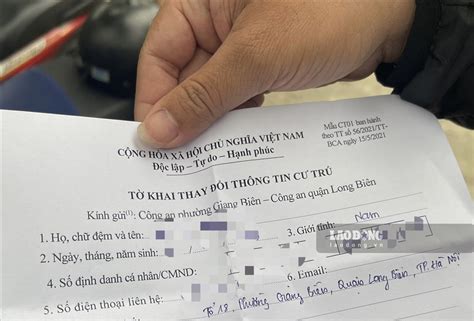 Mẫu CT01 ban hành
theo TT số 56/2021/TT-
BCA ngày 15/5/2021
CỘNG HÒA XÃ HỘI CHỦ NGHĨA VIỆT NAM
Độc lập – Tự do – Hạnh phúc
TỜ KHAI THAY ĐỔI THÔNG TIN CƯ TRÚ
Kính gửi(1): Công an phường Giang Biên – Công an quận Long Biên
1. Họ, chữ đệm và tên:
2. Ngày, tháng, năm sinh: 3. Giới tính: Nam
LAO ĐỘNG
laodong.vn
4. Số định danh cá nhân/CMND:
5. Số điện thoại liên hệ: 6. Email:
Tổ 18, Phường Giang Biên, Quận Long Biên, TP Hà Nội